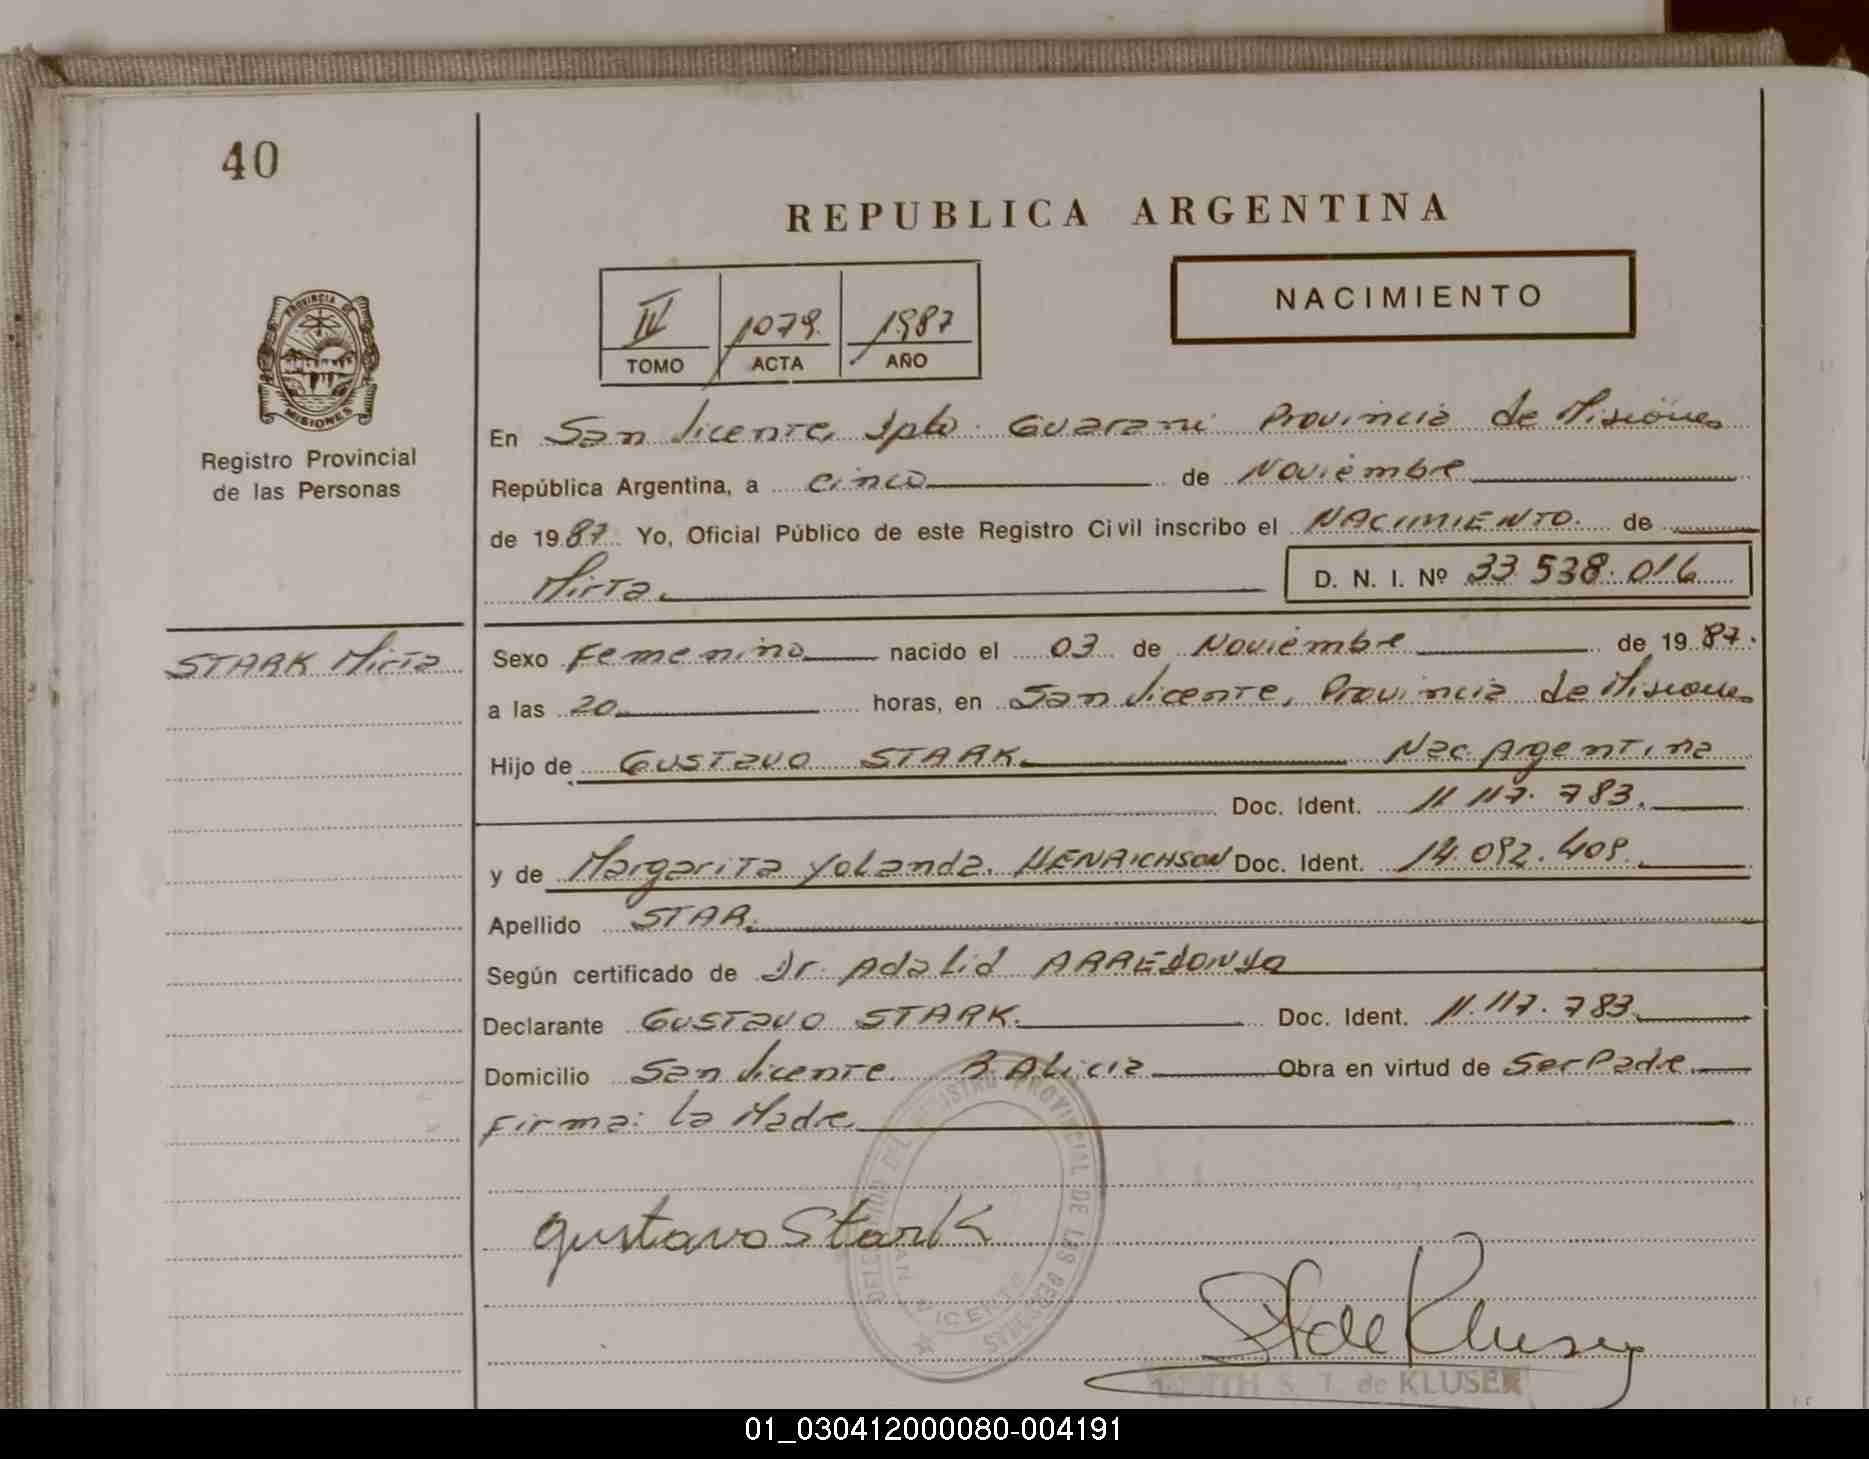 40
REPUBLICA ARGENTINA
NACIMIENTO
IV 1079 1987
TOMO ACTA AÑO
PROVINCIA DE
MISIONES
Registro Provincial
de las Personas
En San Vicente, Dpto. Guarani Provincia de Misiones
República Argentina, a cinco de Noviembre
de 1987 Yo, Oficial Público de este Registro Civil inscribo el NACIMIENTO. de
Mirta. D. N. I. Nº 33 538.016
STARK Mirta
Sexo Femenino nacido el 03 de Noviembre de 1987.
a las 20 horas, en San Vicente, Provincia de Misiones
Hijo de GUSTAVO STARK. Nac. Argentina
Doc. Ident. 11.117.783.
y de Margarita Yolanda. HENRICHSON Doc. Ident. 14.092.409.
Apellido STAR.
Según certificado de Dr. Adalid ARREDONDO
Declarante GUSTAVO STARK. Doc. Ident. 11.117.783.
Domicilio San Vicente B. Alicia Obra en virtud de Ser Padre.
Firma: la Madre
DELEGACION DEL REGISTRO PROVINCIAL DE LAS PERSONAS
SAN VICENTE
Gustavo Stark
ST de Kluser
S. T. de KLUSER
01_030412000080-004191